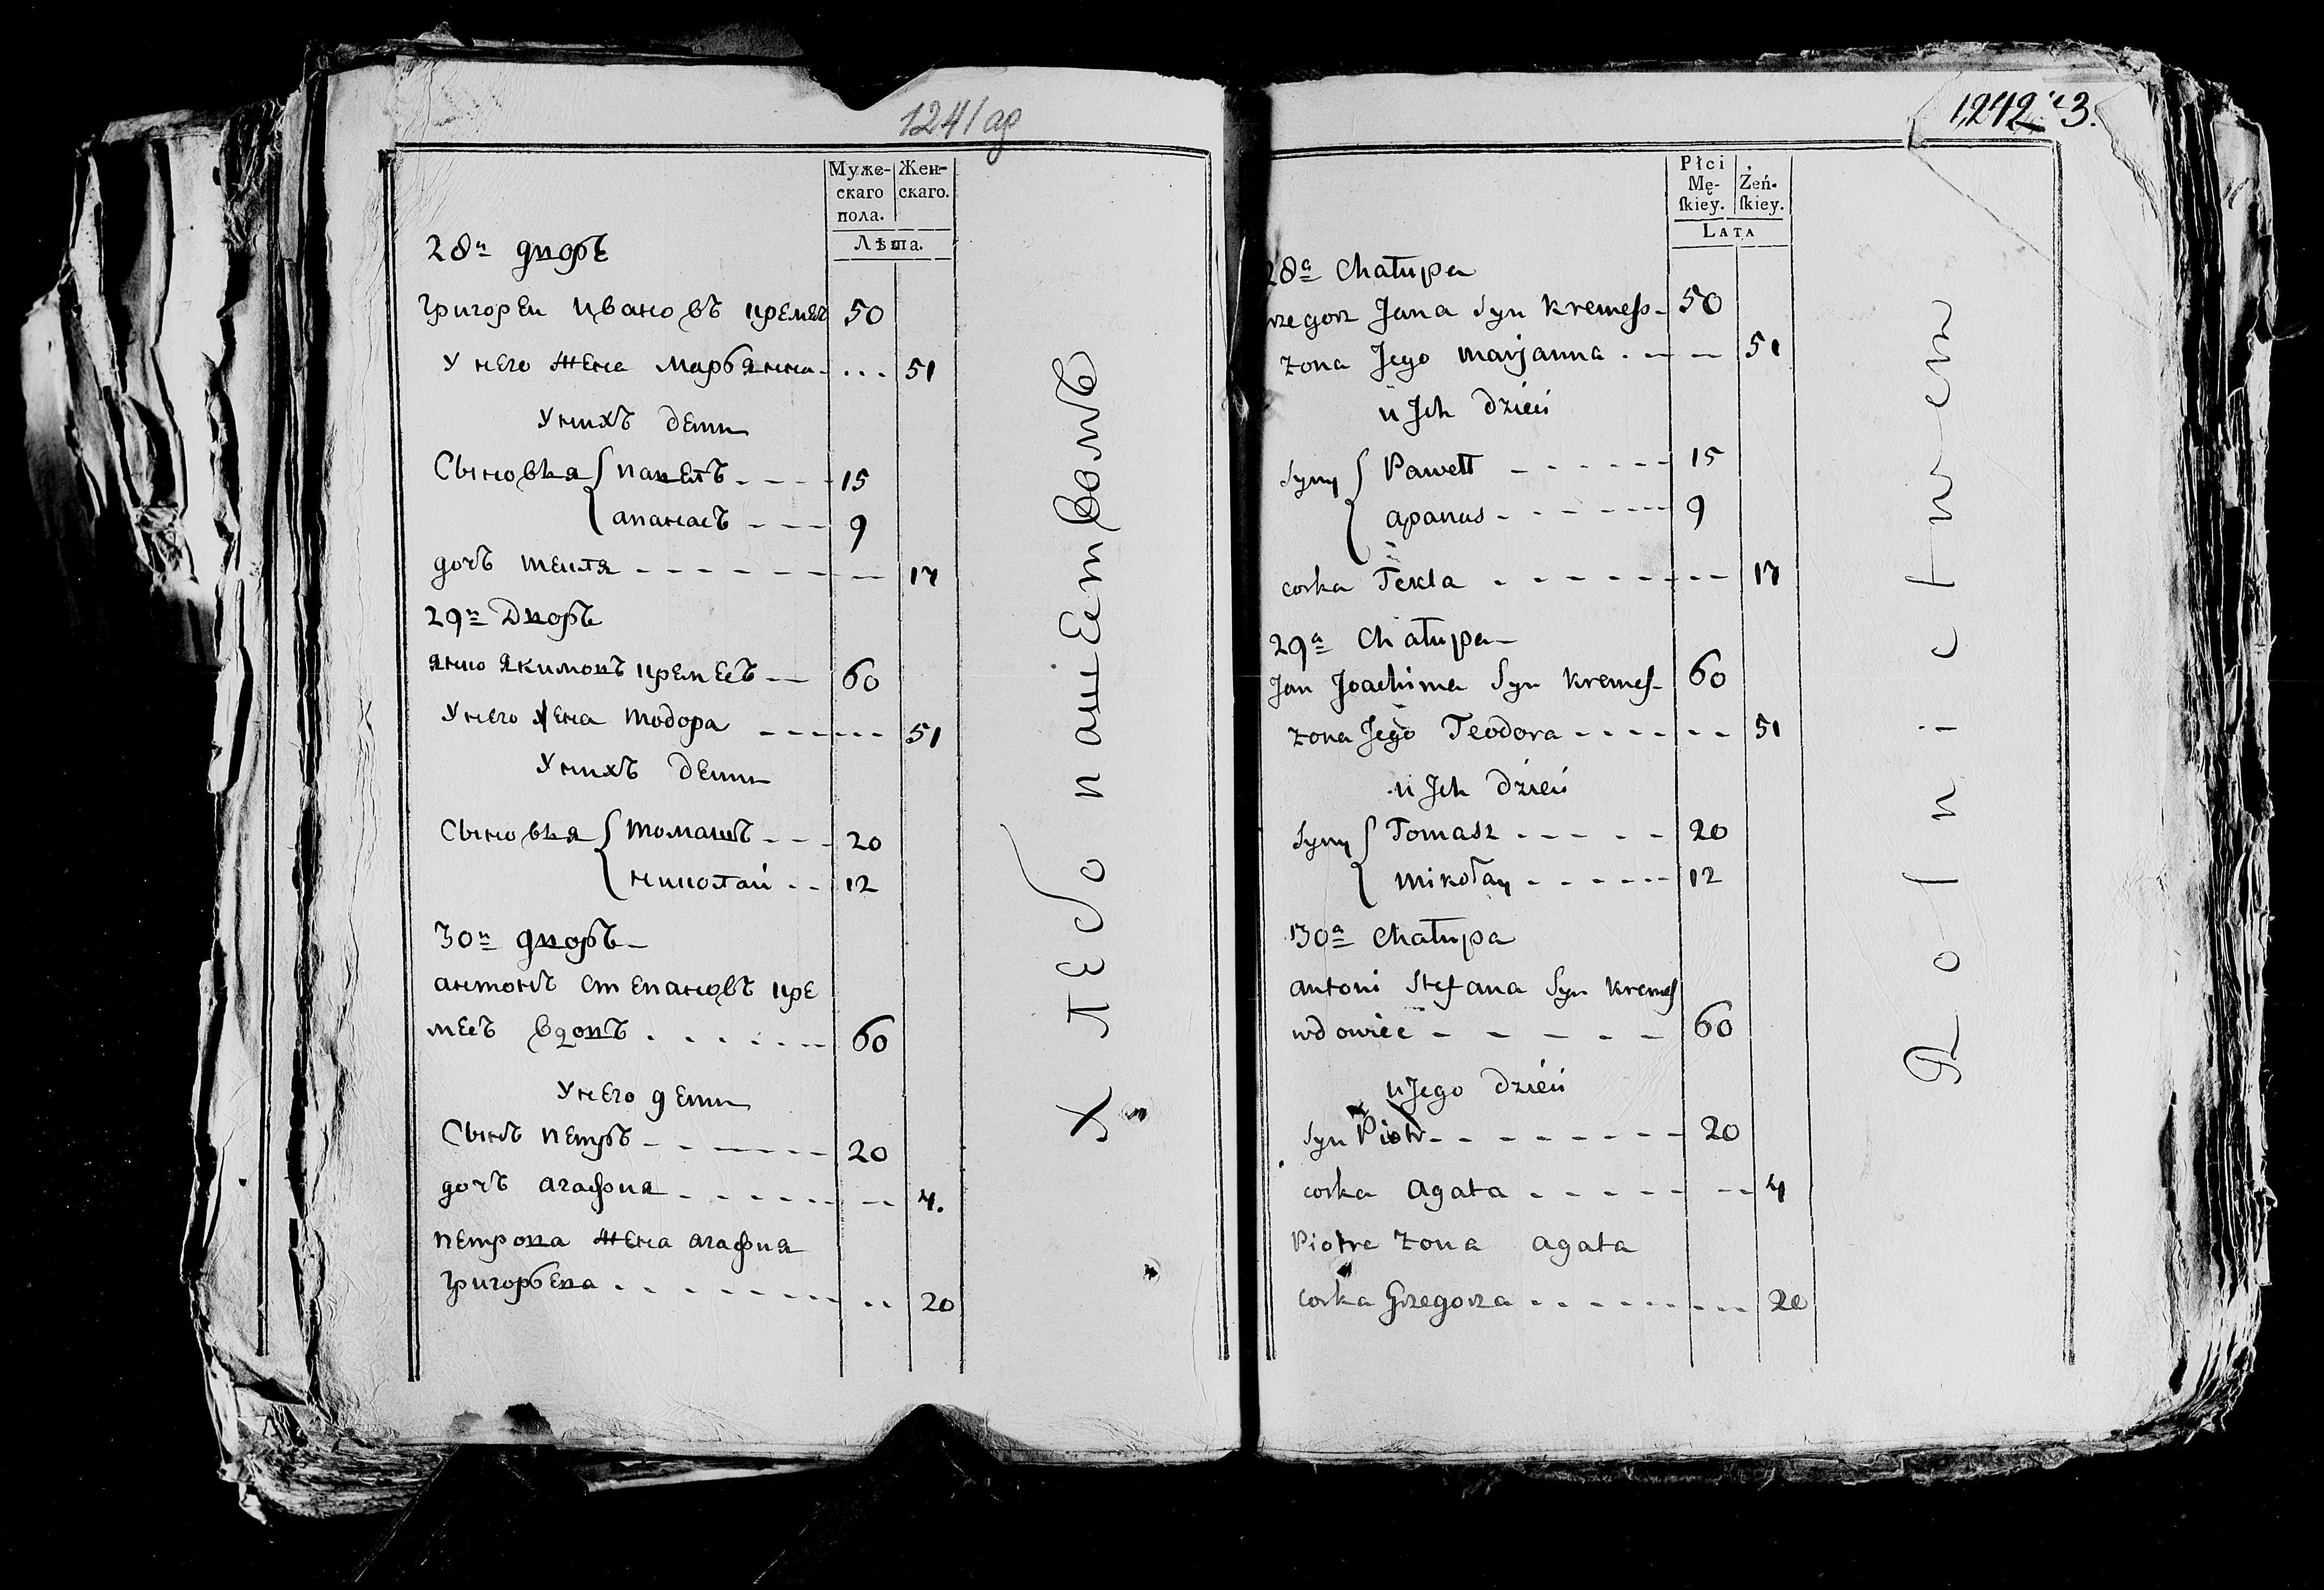 1241 ар
Муже-
скаго
пола.
Жен-
скаго.
Лѣта.
28й дворъ
Григореи Ивановъ кремес 50
у него жена Марьянна - ... 51
у нихъ дети
Сыновья { павелъ - - - - 15
апанасъ - - - 9
дочъ текля - - - - - - - - - 17
29й Дворъ
янко якимовъ кремесъ - - 60
у него жена тодора - - - - - - 51
у нихъ дети
Сыновья { томашъ - - - 20
николай - - 12
30й дворъ -
антонъ степановъ кре
месъ вдовъ . . . . . . . 60
у него дети
Сынъ петръ - - - - - - - 20
дочъ агафия - - - - - - - - - 4.
петрова жена агафия
григорьева . - - - - - - - - . . 20
хлебопашествомъ
1,242 3.
Płci
Mę-
ſkiey.
Żeń-
ſkiey.
LATA
28a Chałupa
rzegorz Jana Syn Kremess - 50
żona Jego marjanna . - - - 51
u Jch dzieci
Syny { Pawełł - - - - - - 15
apanas - - - - - - 9
corka Tekla - - - - - - - - 17
29a Chałupa -
Jan Joachima Syn Kremes - 60
żona Jego Teodora - - - - - - 51
u Jch dzieci
Syny { Tomasz - - - - - 20
mikołay - - - - - - 12
30a Chałupa
antoni Stefana Syn Kremes
wdowiec - - - - - 60
u Jego dzieci
Syn Piotr - - - - - - - - - 20
corka agata - - - - - - - 4
Piotra żona agata
corka Grzegorza - - - - - - - - - 20
Rolnictwem